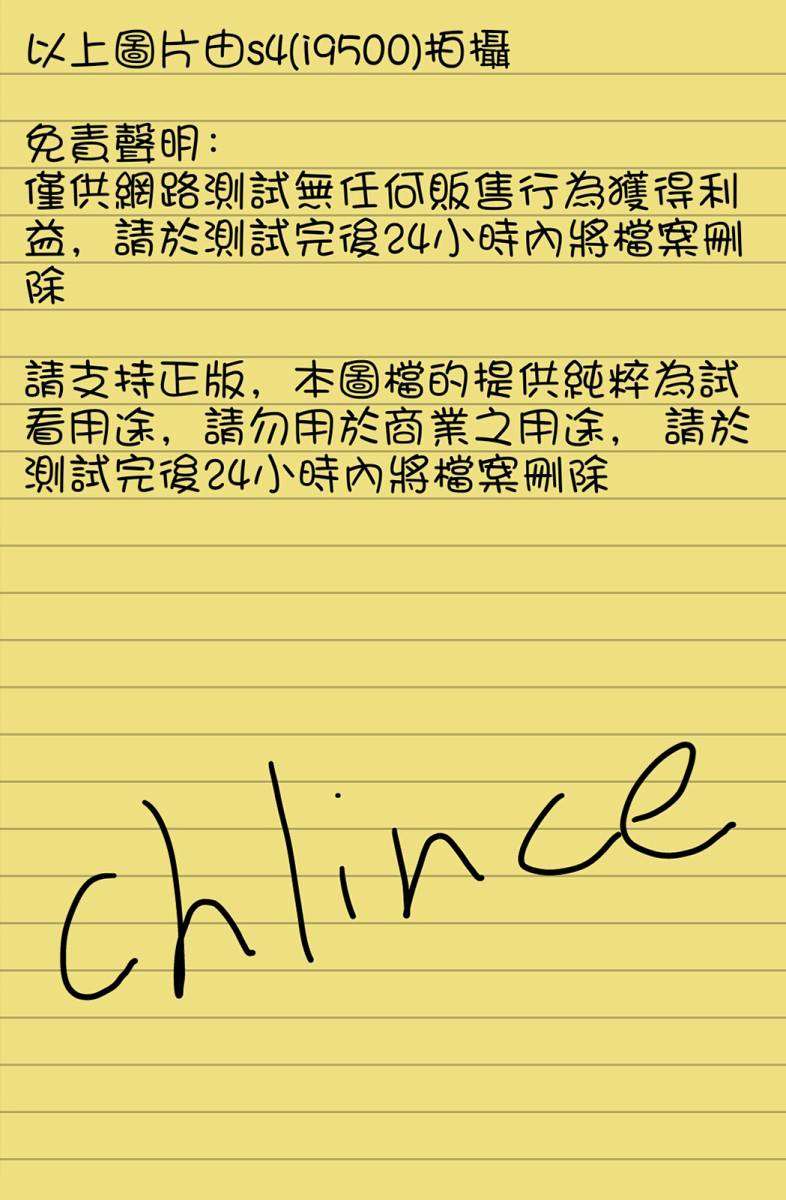 以上圖片由s4(i9500)拍攝
免責聲明：
僅供網路測試無任何販售行為獲得利
益，請於測試完後24小時內將檔案刪
除
請支持正版，本圖檔的提供純粹為試
看用途，請勿用於商業之用途， 請於
測試完後24小時內將檔案刪除
chlince